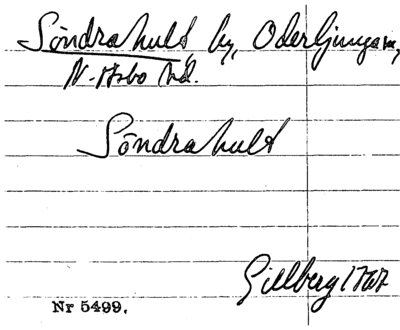 Söndrahult by, Oderljunga sn,
N. Åsbo hd.
Söndrahult
Gillberg 1767
Nr 5499.